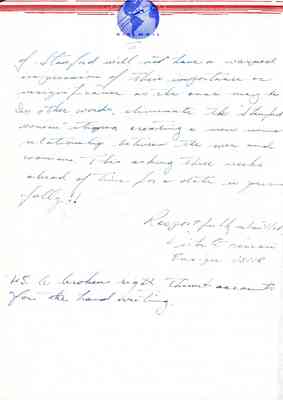 of Stanford will not have a warped
impression of their importance or
insignificance as the case may be
In other words, eliminate the Stanford
woman stigma creating a new
relationship between the men and
women - I am asking three weeks
ahead of time for a date
Respectfully submitted
P.S. A broken right thumb accounts
for the hand writing.